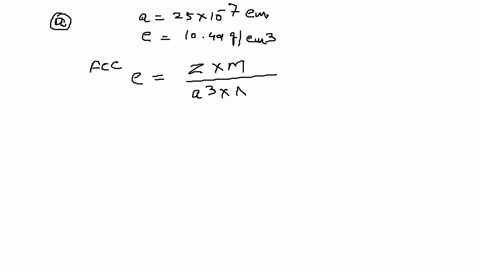 ⓐ a = 25×10⁻⁷ em
e = 10.49 g/em3
FCC e = Z×M / a3×N